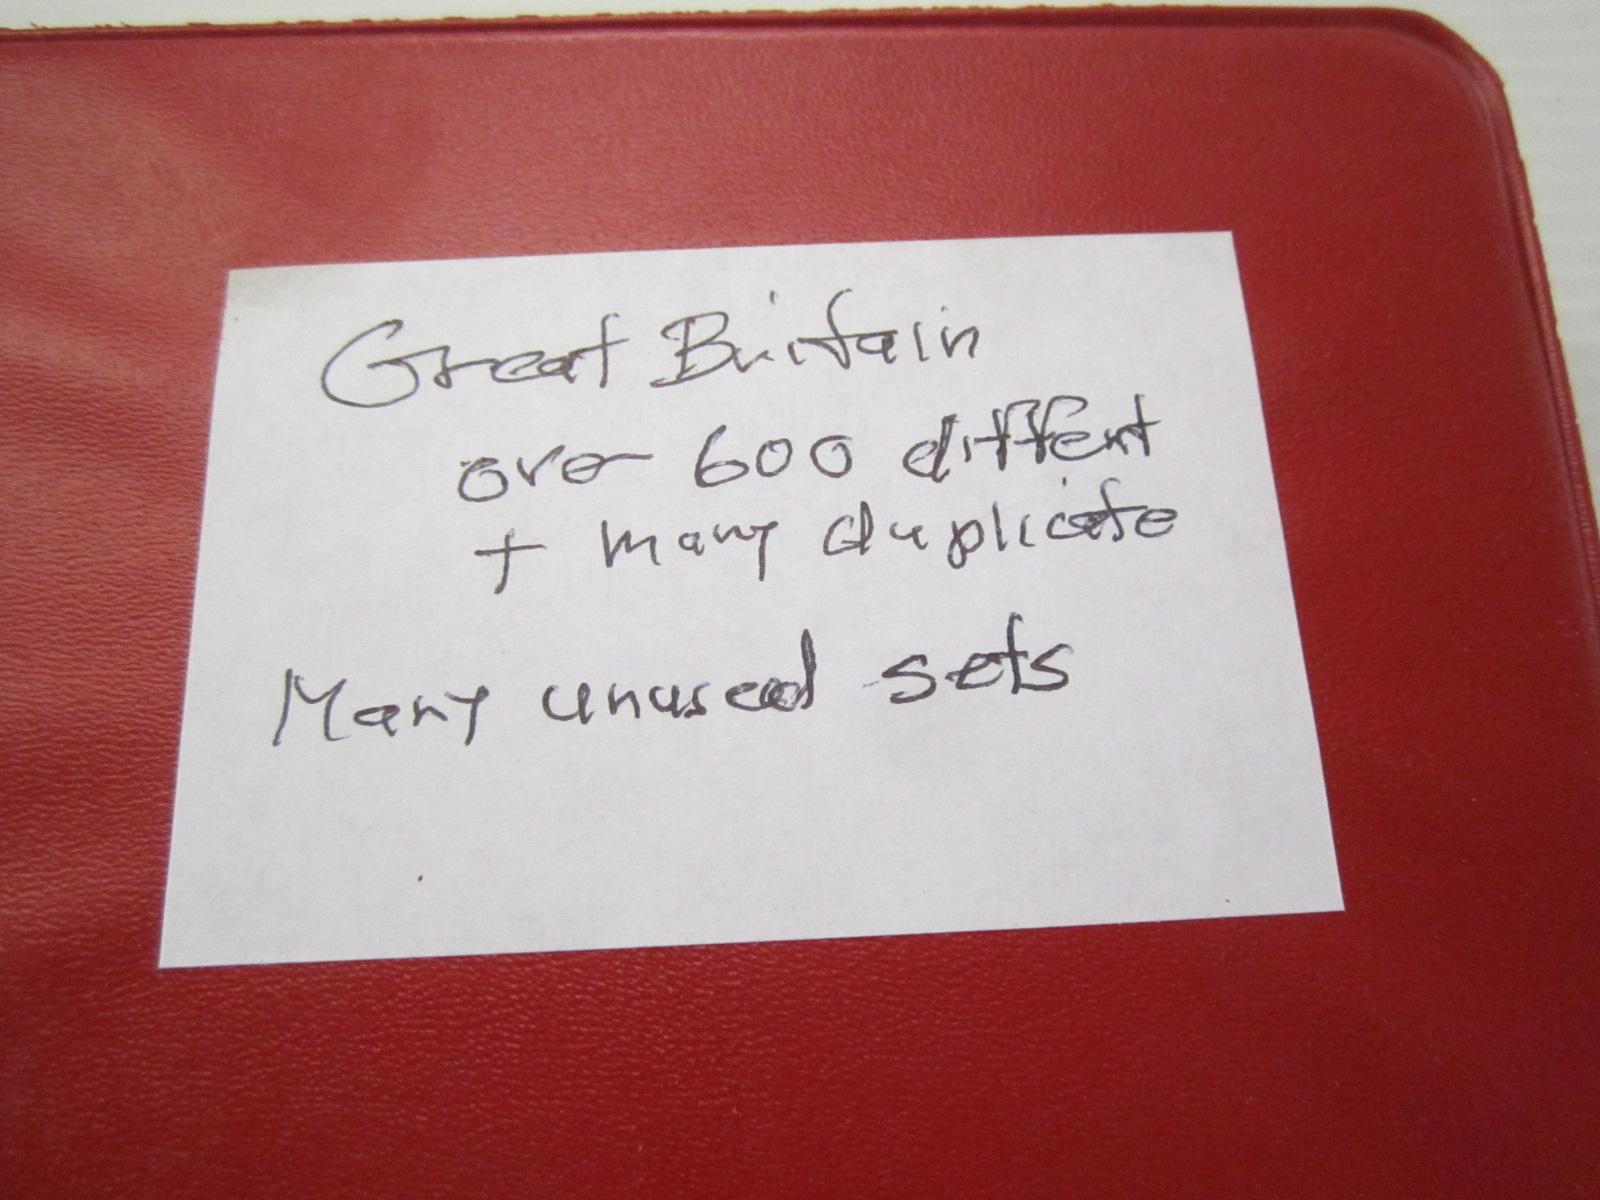 Great Britain
over 600 diffent
+ many duplicate
Many unused sets